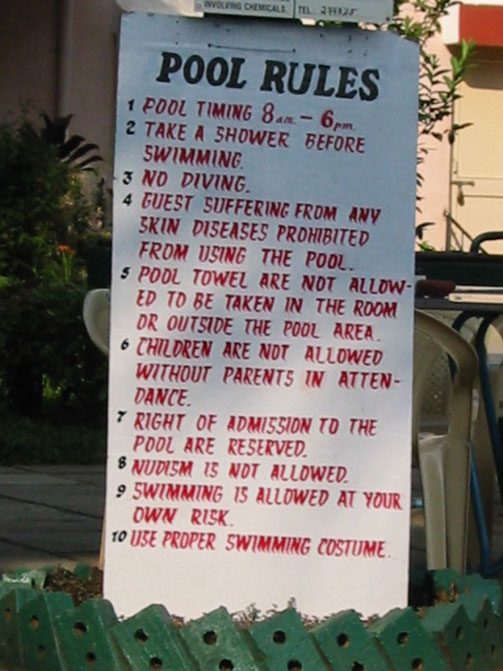 INVOLVING CHEMICALS. TEL:
POOL RULES
1 POOL TIMING 8 am. – 6 pm.
2 TAKE A SHOWER BEFORE
SWIMMING.
3 NO DIVING.
4 GUEST SUFFERING FROM ANY
SKIN DISEASES PROHIBITED
FROM USING THE POOL.
5 POOL TOWEL ARE NOT ALLOW-
ED TO BE TAKEN IN THE ROOM
OR OUTSIDE THE POOL AREA.
6 CHILDREN ARE NOT ALLOWED
WITHOUT PARENTS IN ATTEN-
DANCE.
7 RIGHT OF ADMISSION TO THE
POOL ARE RESERVED.
8 NUDISM IS NOT ALLOWED.
9 SWIMMING IS ALLOWED AT YOUR
OWN RISK.
10 USE PROPER SWIMMING COSTUME.